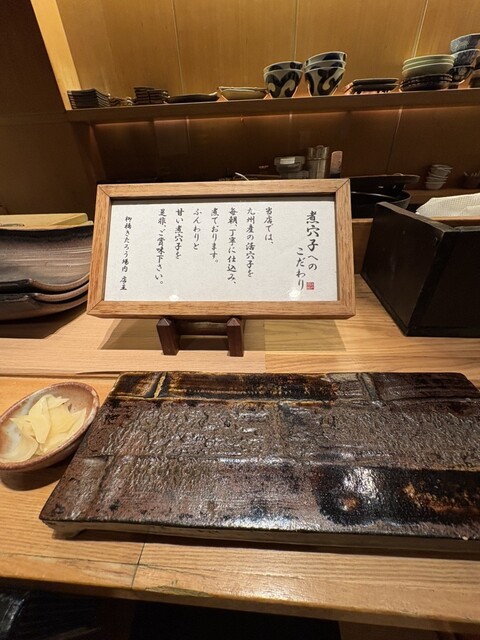 煮穴子への
こだわり
当店では、
九州産の活穴子を
毎朝、丁寧に仕込み、
煮ております。
ふんわりと
甘い煮穴子を
是非、ご賞味下さい。
店主